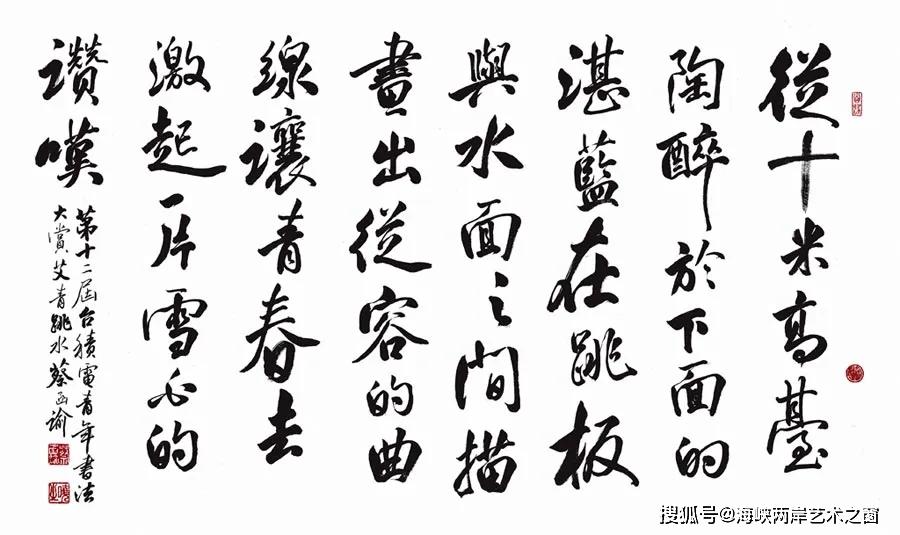 從十米高臺
陶醉於下面的
湛藍在跳板
與水面之間描
畫出從容的曲
線讓青春去
激起一片雪白的
讚嘆
第十二屆台積電青年書法
大賞艾青跳水蔡函諭
搜狐号@海峡两岸艺术之窗